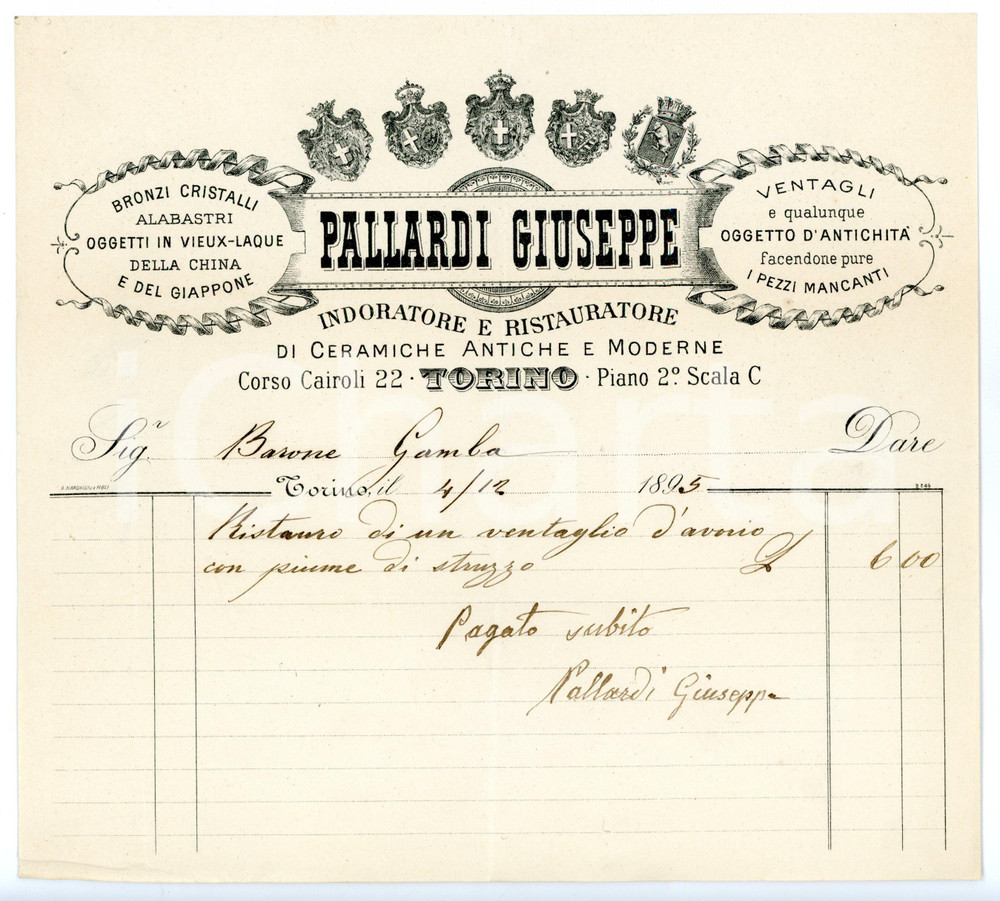 BRONZI CRISTALLI
ALABASTRI
OGGETTI IN VIEUX-LAQUE
DELLA CHINA
E DEL GIAPPONE
PALLARDI GIUSEPPE
VENTAGLI
e qualunque
OGGETTO D'ANTICHITA'
facendone pure
I PEZZI MANCANTI
INDORATORE E RISTAURATORE
DI CERAMICHE ANTICHE E MODERNE
Corso Cairoli 22 · TORINO · Piano 2.º Scala C
Sig.r Barone Gamba Dare
Torino, il 4/12 1895
Ristauro di un ventaglio d'avorio
con piume di struzzo L 6 00
Pagato subito
Pallardi Giuseppe
iCharta